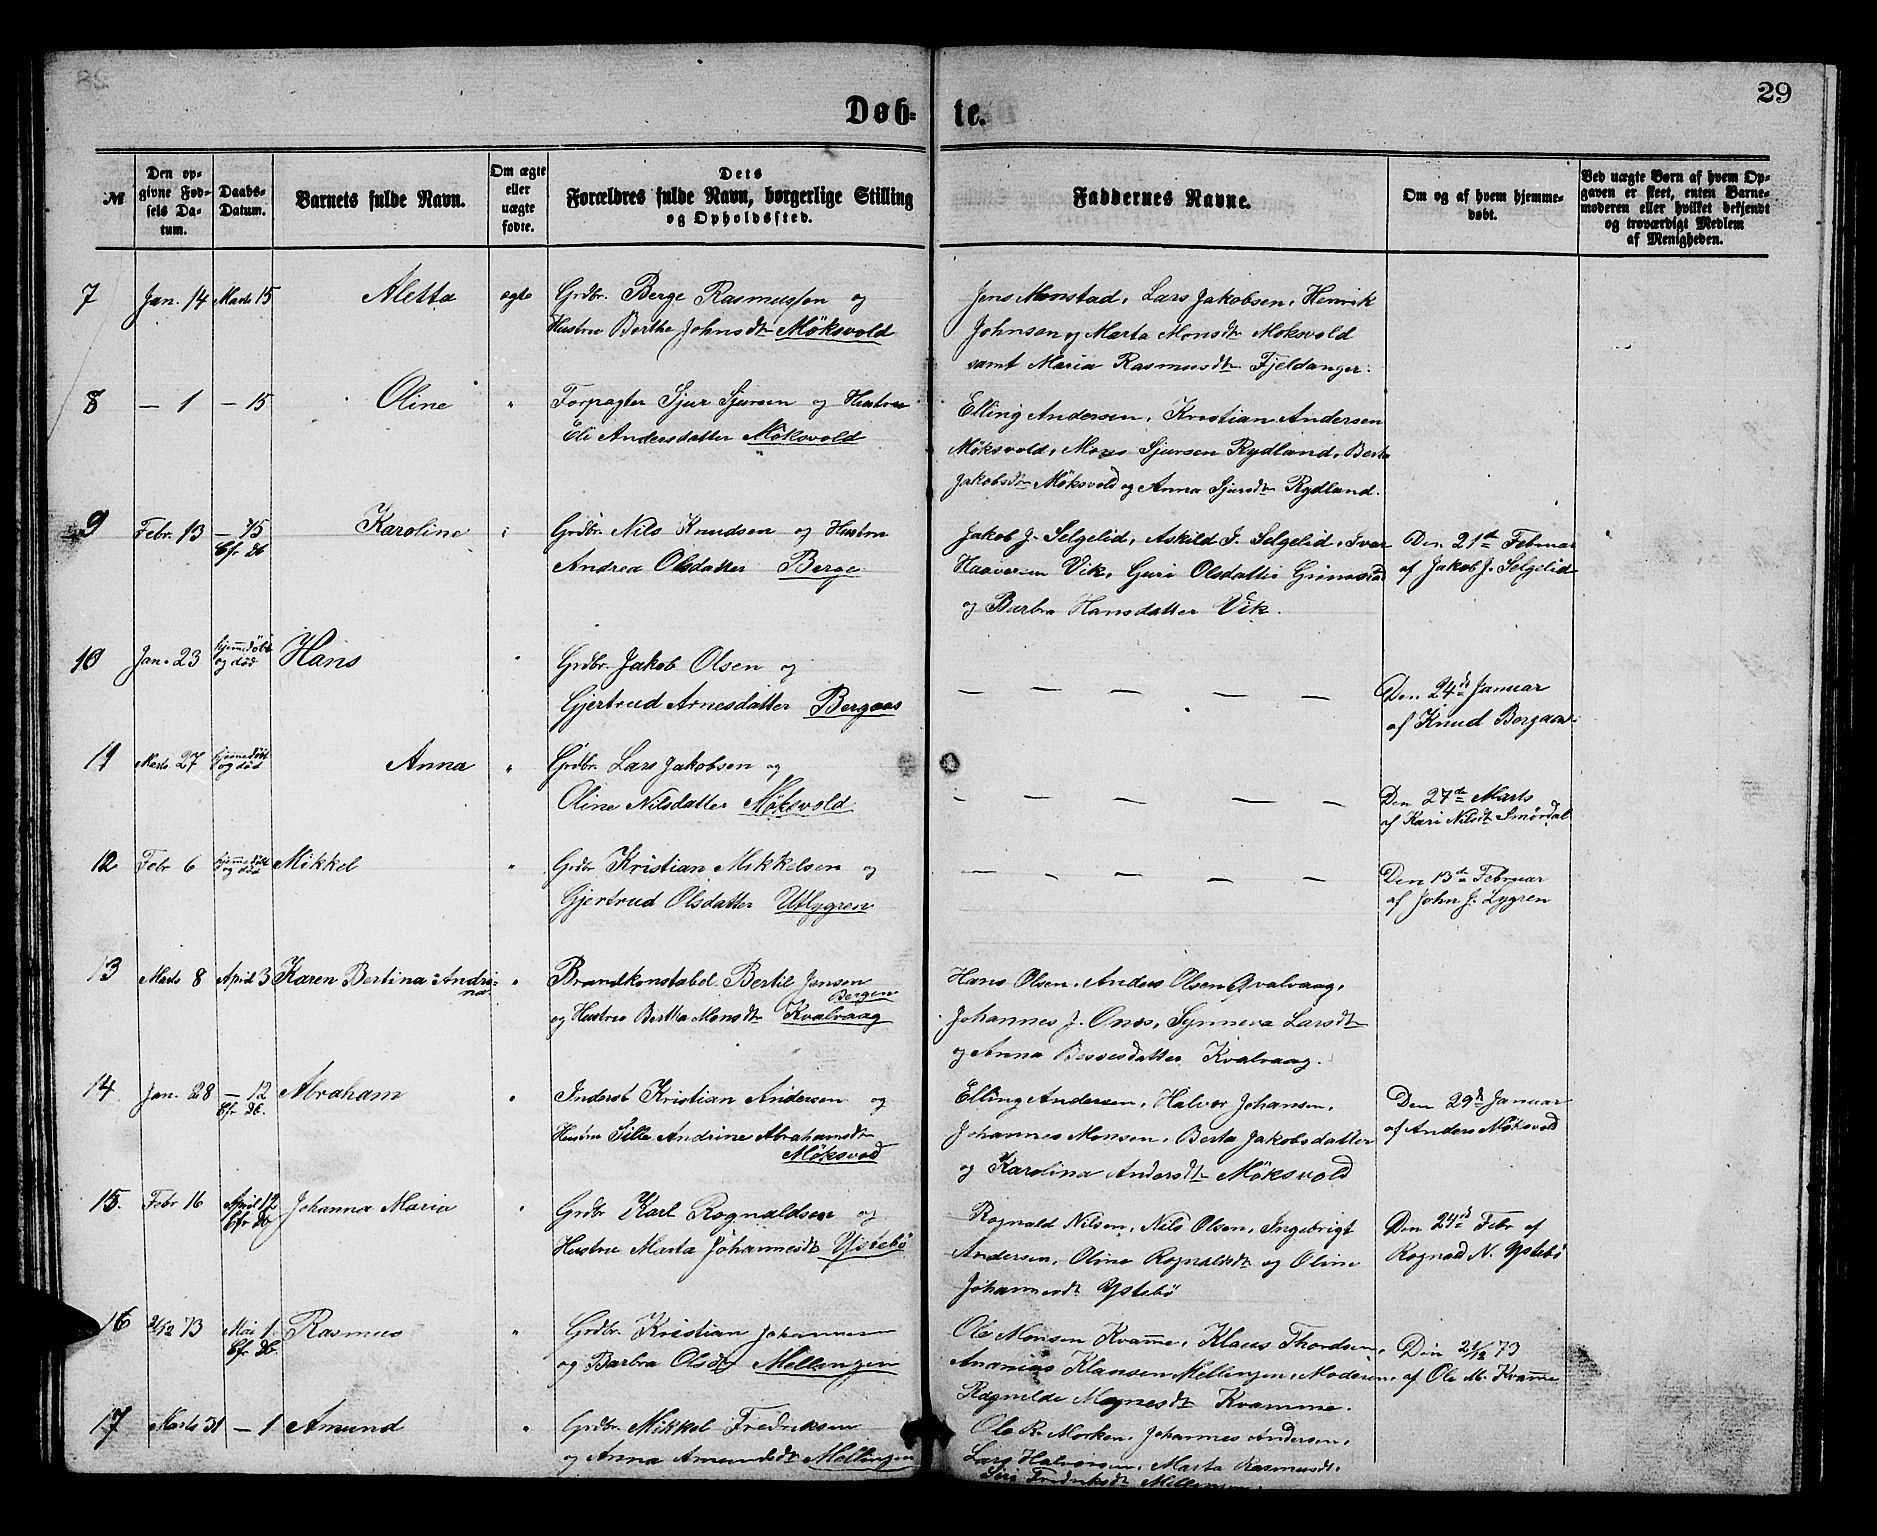 29
Døb- te.
№
Den opgivne Fødsels Datum.
Daabs-Datum.
Barnets fulde Navn.
Om ægte eller uægte fødte.
Dets Forældres fulde Navn, borgerlige Stilling og Opholdssted.
Faddernes Navne.
Om og af hvem hjemmedøbt.
Ved uægte Børn af hvem Opgaven er skeet, enten Barnemoderen eller hvilket bekjendt og troværdigt Medlem af Menigheden.
7 Jan. 14 Marts 15 Aletta ægte Grdbr. Berge Rasmussen og
Hustru Berthe Johnsdtr Møksvold
Jens Monstad, Lars Jakobsen, Henrik
Johnsen og Marta Monsdtr Moksvold
samt Maria Rasmusdtr Fjeldanger.
8 — 1 — 15 Oline " Forpagter Sjur Sjursen og Hustru
Eli Andersdatter Møksvold
Elling Andersen, Kristian Andersen
Møksvold, Mons Sjursen Rydland, Berta
Jakobsdtr Møksvold og Anna Sjursdtr Rydland.
9 Febr. 13 — 15 Cfr. db Karoline " Grdbr. Nils Knudsen og Hustru
Andrea Olsdatter Berge
Jakob J. Selgelid, Askild J. Selgelid, Iver
Haaversen Vik, Guri Olsdatter Grimstad
og Barbra Hansdatter Vik.
Den 21de Februar
af Jakob J. Selgelid
10 Jan. 23 hjemmedøbt og død Hans " Grdbr. Jakob Olsen og
Gjertrud Arnesdatter Bergaas
— — — — —
Den 24de Januar
af Knud Bergaas.
11 Marts 27 hjemmedøbt og død Anna " Grdbr. Lars Jakobsen og
Oline Nilsdatter Møksvold
— — — — —
Den 27de Marts
af Kari Nilsdtr Smørdal
12 Febr 6 hjemmedøbt og død Mikkel " Grdbr Kristian Mikkelsen og
Gjertrud Olsdatter Utlygren
— — — — —
Den 13de Februar
af John J. Lygren
13 Marts 8 April 3 Karen Bertina Andrina " Brandkonstabel Bertil Jensen
Bergen
og Hustru Bertha Monsdtr Kvalvaag
Hans Olsen, Anders Olsen Qvalvaag,
Johannes J. Onæs, Synneva Larsdtr
og Anna Bessesdatter Kvalvaag.
14 Jan. 28 — 12 Cfr. db. Abraham " Inderst Kristian Andersen og
Hustru Sille Andrine Abrahamsdtr
Møksvod
Elling Andersen, Halvor Johansen,
Johannes Monsen, Berta Jakobsdatter
og Karolina Andersdtr Møksvold
Den 29de Januar
af Anders Møksvod
15. Febr 16 April 12 Cfr db Johanna Maria " Grdbr Karl Rognaldsen og
Hustru Marta Johannesdtr Ystebø
Rognald Nilsen, Nils Olsen, Ingebrigt
Andersen, Oline Rognaldsdtr og Oline
Johannesdtr Ystebø
Den 24de Febr af
Rognald N. Ystebø
16 21/12 73 Mai 1. Cfr. db. Rasmus " Grdbr. Kristian Johannes
og Barbra Olsdtr Mellengen
Ole Monsen Kvamme, Klaus Thordsen,
Ananias Klausen Mellingen, Moderen,
Ragnilde Magnesdtr Kvamme.
Den 21/12 73
af Ole M. Kvamme
17 Marts 31 — 1 Amund " Grdbr. Mikkel Fredriksen
og Anna Amundsdtr Mellingen
Ole R. Morken, Johannes Andersen,
Lars Halvorsen, Marta Rasmusdtr,
Siri Fredriksdtr Mellingen.